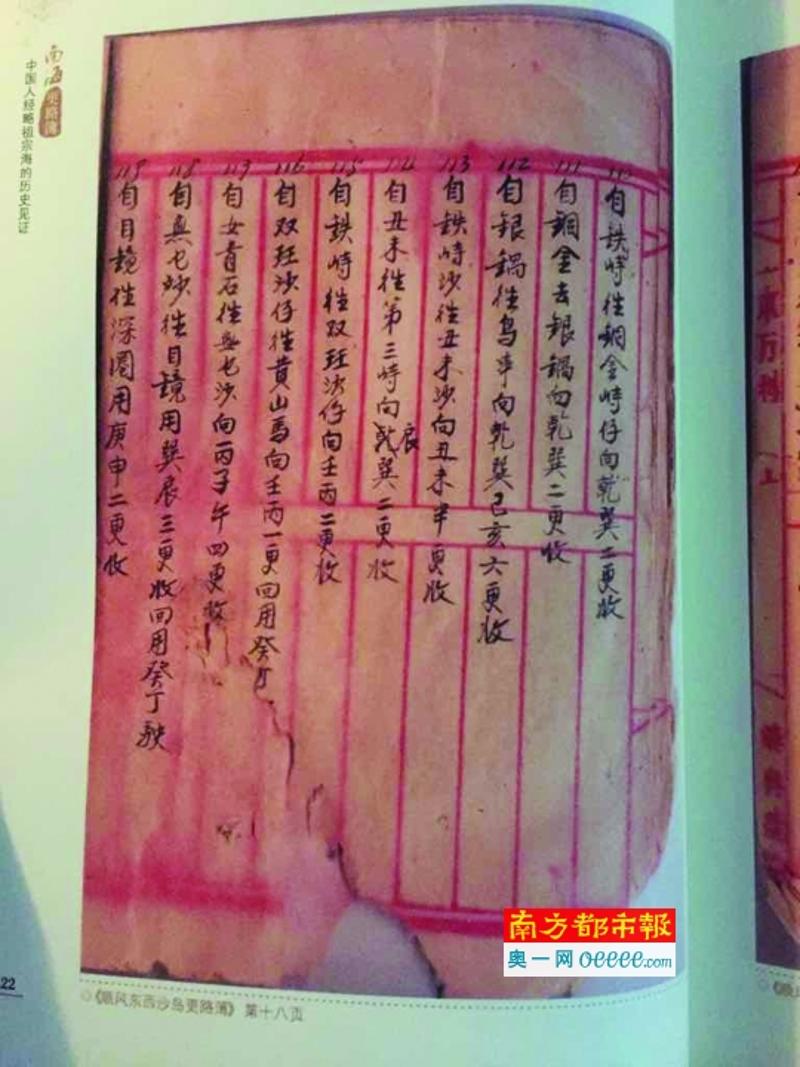 南海更路簿
中国人经略祖宗海的历史见证
110
自鉄峙徃銅金峙仔向乾巽二更收
111
自銅金去銀鍋向乾巽二更收
112
自銀鍋徃鸟串向乾巽己亥六更收
113
自鉄峙沙徃丑未沙向丑未半更收
114
自丑未徃第三峙向乾巽辰二更收
115
自鉄峙徃双玨沙仔向壬丙二更收
116
自双玨沙仔徃貴山馬向壬丙一更回用癸丁
117
自女青石徃無乜沙向丙子午四更收
118
自無乜沙徃目镜用巽辰三更收回用癸丁駛
119
自目镜徃深圈用庚申二更收
一本万利
上
22
《顺风东西沙岛更路簿》 第十八页
南方都市報
奥一网 oeeee.com